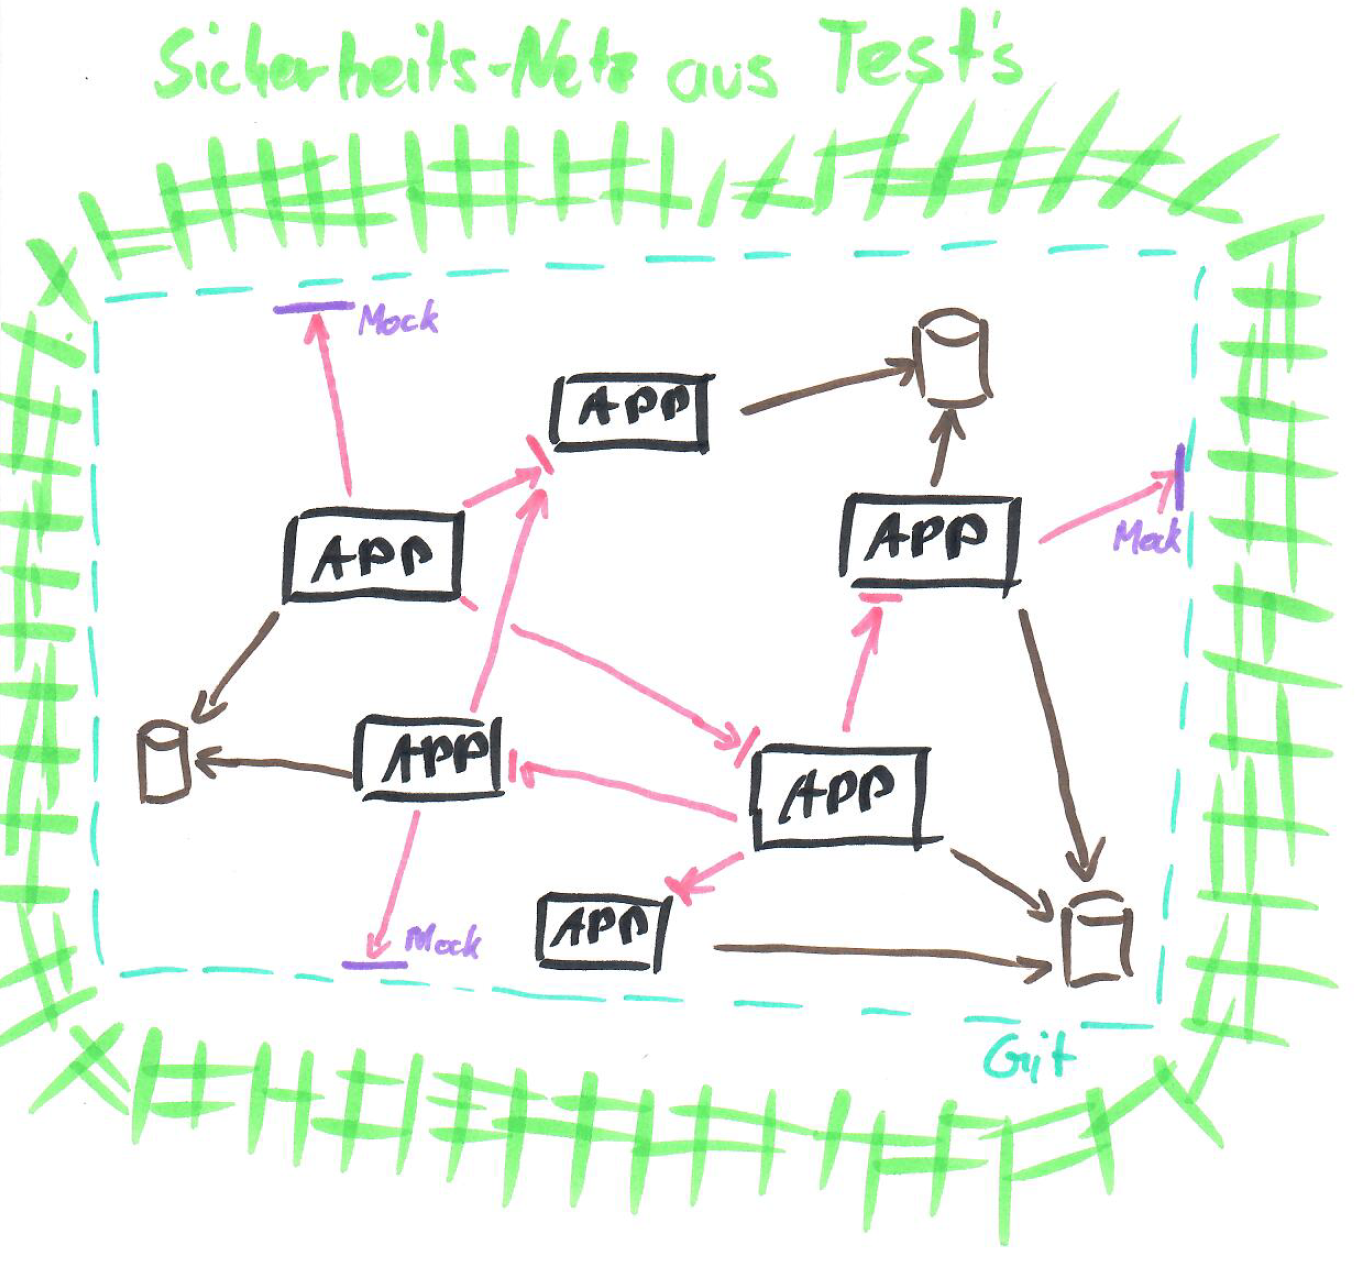 Sicherheits-Netz aus Test's
Mock
APP
APP
APP
Mock
APP
APP
Mock
APP
Git